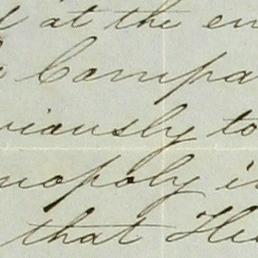 at the en
Compa
viously to
nopoly i
that He